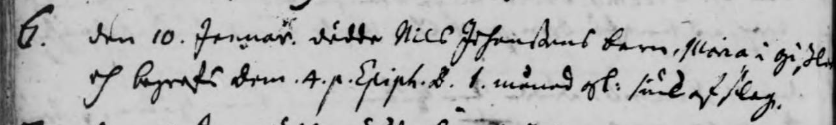 6. den 10. Januar. dödde Nils Johanssons barn, Maria i
och begrofs Dom. 4. p. Epiph. 1. månad gl: siuk af slag.